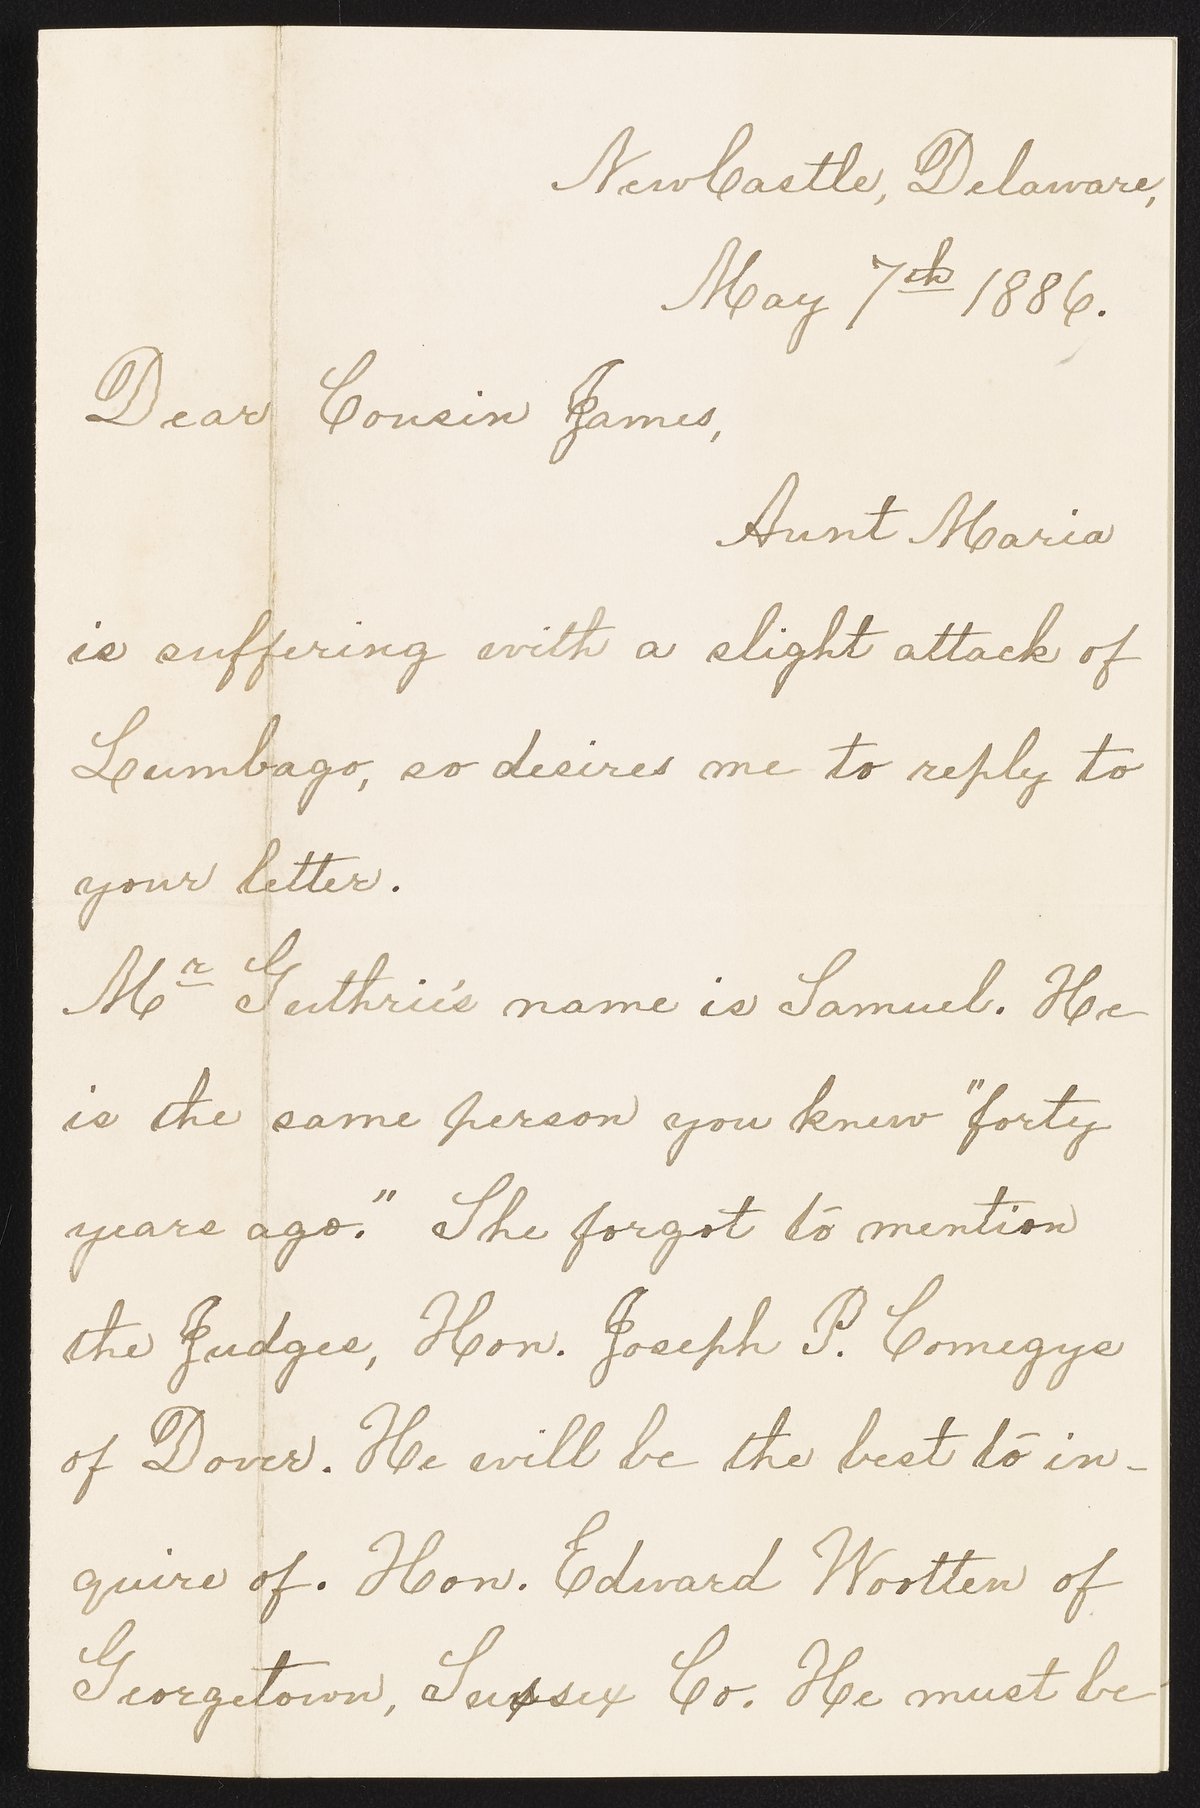 NewCastle, Delaware,
May 7th 1886.
Dear Cousin James,
Aunt Maria
is suffering with a slight attack of
Lumbago, so desires me to reply to
your letter.
Mr Guthrie's name is Samuel. He
is the same person you knew "forty
years ago." She forgot to mention
the Judges, Hon. Joseph P. Comegys
of Dover. He will be the best to in-
quire of. Hon. Edward Wootten of
Georgetown, Sussex Co. He must be